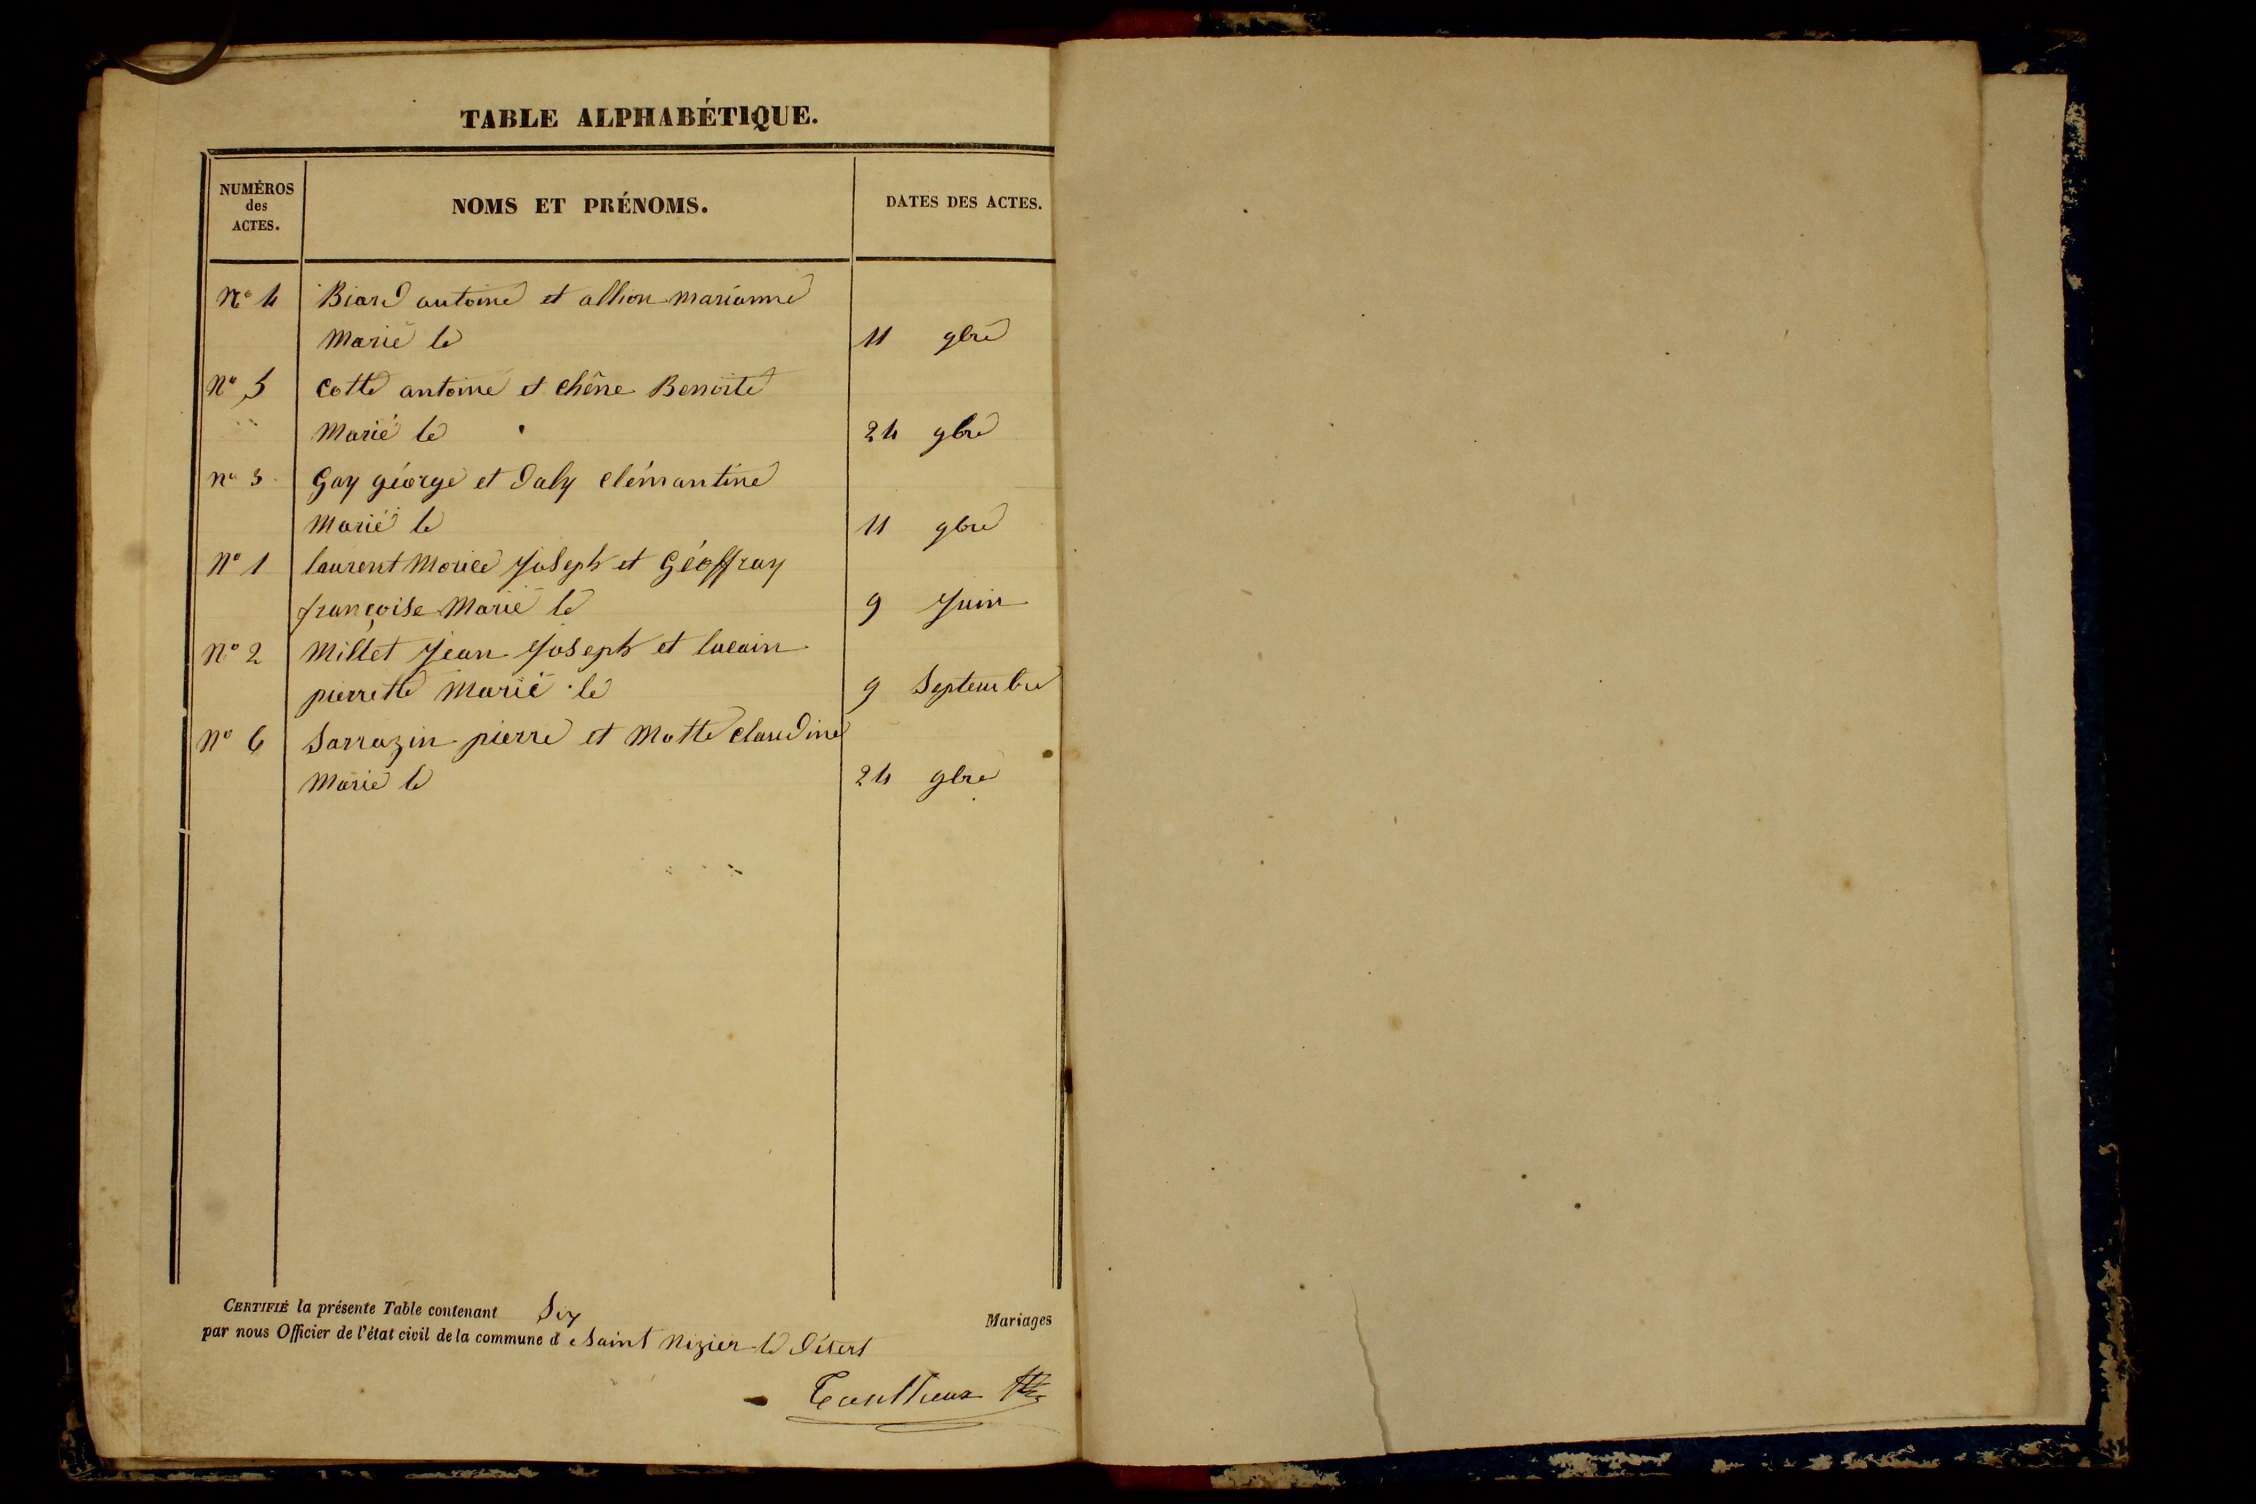 TABLE ALPHABÉTIQUE.
NUMÉROS
des
ACTES.
NOMS ET PRÉNOMS.
DATES DES ACTES.
N° 4 Biard antoine et allion marianne
Marié le 11 9bre
N° 5 Cotte antoine et Chêne Benoite
Marié le 24 9bre
n° 3 Gay géorge et Daly clémantine
Marié le 11 9bre
N° 1 laurent Marice Joseph et Géoffray
françoise Marié le 9 Juin
N° 2 Millet Jean Joseph et lucain
pierrette Marié le 9 Septembre
N° 6 Sarrazin pierre et Motte claudine
Marié le 24 9bre
CERTIFIÉ la présente Table contenant Six Mariages
par nous Officier de l'état civil de la commune de Saint Nizier le Désert